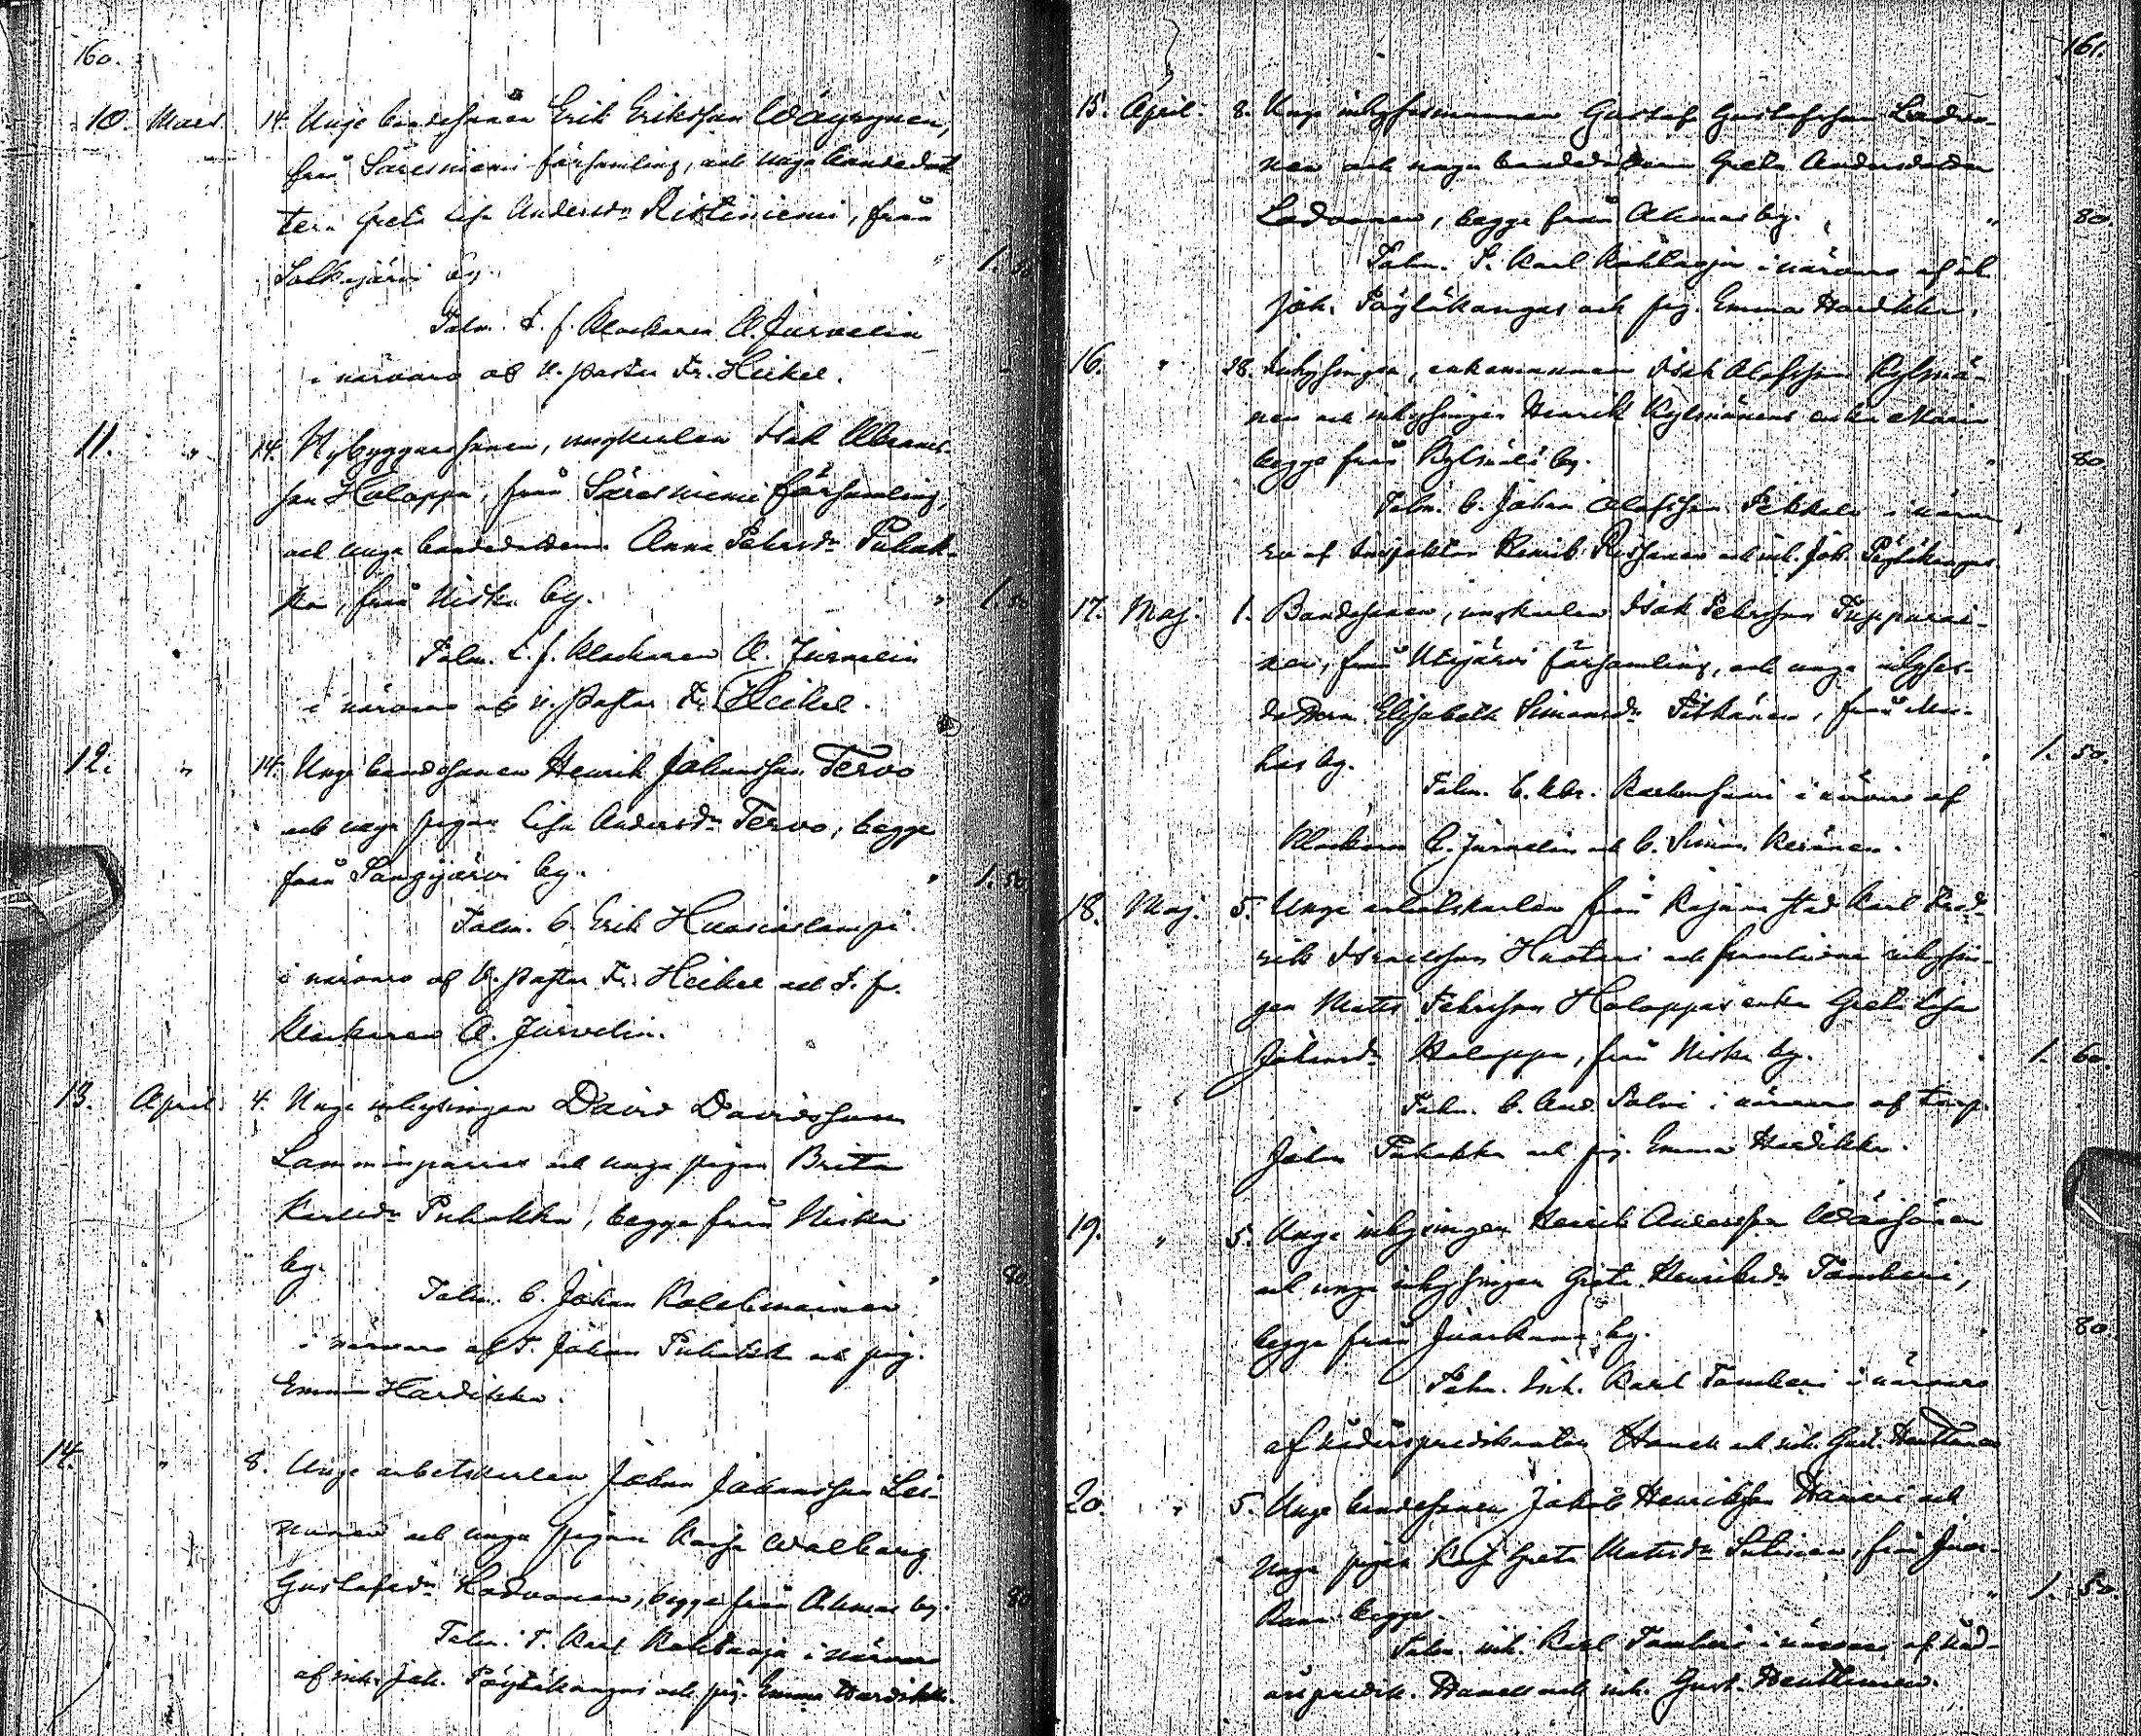 160.
10. Mars 14. Unge bondesonen Erik Eriksson Wäyrynen,
från Säresniemi församling, och unga bondedot
tern Greta Lisa Andersdr Ristiniemi, från
Salkajärvi by. " 1. 50
Talm. t. f. Klockaren A. Jurvelin
i närvaro af v. pastor Fr. Heikel.
11. " 14. Nybyggaresonen, ungkarlen Isak Abrams-
son Holappa, från Säresniemi församling,
och unga bondedottern Anna Pehrsdr Puhak-
ka, från Niska by. " 1. 50
Talm. t. f. Klockaren A. Jurvelin
i närvaro af v. Pastor Fr. Heikel.
12. " 14. Unge bondesonen Henrik Johansson Tervo
och unga pigan Lisa Andersdr Tervo, begge
från Sanginjärvi by. " 1. 50
Talm. b. Erik
i närvaro af V. Pastor Fr. Heikel och t. f.
Klockaren A. Jurvelin.
13. April. 4. Unge inhysingen David Davidsson
Lamminparras och unga pigan Brita
Karlsdr Puhakka, begge från Niska
by. " 80
Talm. b. Johan Kolehmainen
i närvaro af t. Johan Puhakka och pig.
Emma Hardikka.
14. " 8. Unge arbetskarlen Johan Johansson Lei-
nonen och unga pigan Kajsa Walborg
Gustafsdr Ladvonen, begge från Ahmas by. 80
Talm. t. Karl i närvaro
af inh. Joh. Pöytäkangas och pig. Emma Hardikka.
161.
15. April. 8. Unge inhysesmannen Gustaf Gustafsson Ladvo-
nen och unga bondedottern Greta Andersdotter
Ladvonen, begge från Ahmas by. " 80.
Talm. t. Karl i närvaro af inh.
Joh. Pöytäkangas och pig. Emma Hardikka.
16. " 28. Inhysingen, enkemannen Isak Olofsson Kylmä-
nen och inhysingen Henrik Kylmänens enka Maria
begge från Kylmälä by. " 80.
Talm. b. Johan Olofsson Pekkala i närva-
ro af Inspektor Henrik och inh. Joh. Pöytäkangas.
17. Maj. 1. Bondesonen, ungkarlen Isak Pehrsson Tupparai-
nen, från Utajärvi församling, och unga inhyses-
dottern Elisabeth Simonsdr Pitkänen, från Mu-
hos by. " 1. 50.
Talm. b. Abr. i närvaro af
Klockaren A. Jurvelin och b. Simon Keränen.
18. Maj. 5. Unge arbetskarlen från Kajana stad Karl Fred-
rik Israelsson Huotari och framlidne inhysin-
gen Mats Pehrsson Holappas enka Greta Lisa
Johansdr Holappa, från Niska by. " 1. 60.
Talm. b. And. Palvi i närvaro af torp.
Johan Puhakka och pig. Emma Hardikka.
19. " 5. Unge inhysingen Henrik Andersson Wäisänen
och unga inhysingen Greta Henriksdr Tamberi,
begge från Juorkuna by. " 80.
Talm. inh. Karl Tamberi i närvaro
af nådårspredikanten och inh. Gust. Hentunen
20. " 5. Unge bondesonen Jakob Henriksson och
unga pigan Kajsa Greta Matsdr Sutinen, från Juor-
kuna begge. " 1. 50.
Talm. inh. Karl Tamberi i närvaro af nåd-
årspredik. och inh. Gust. Hentunen.